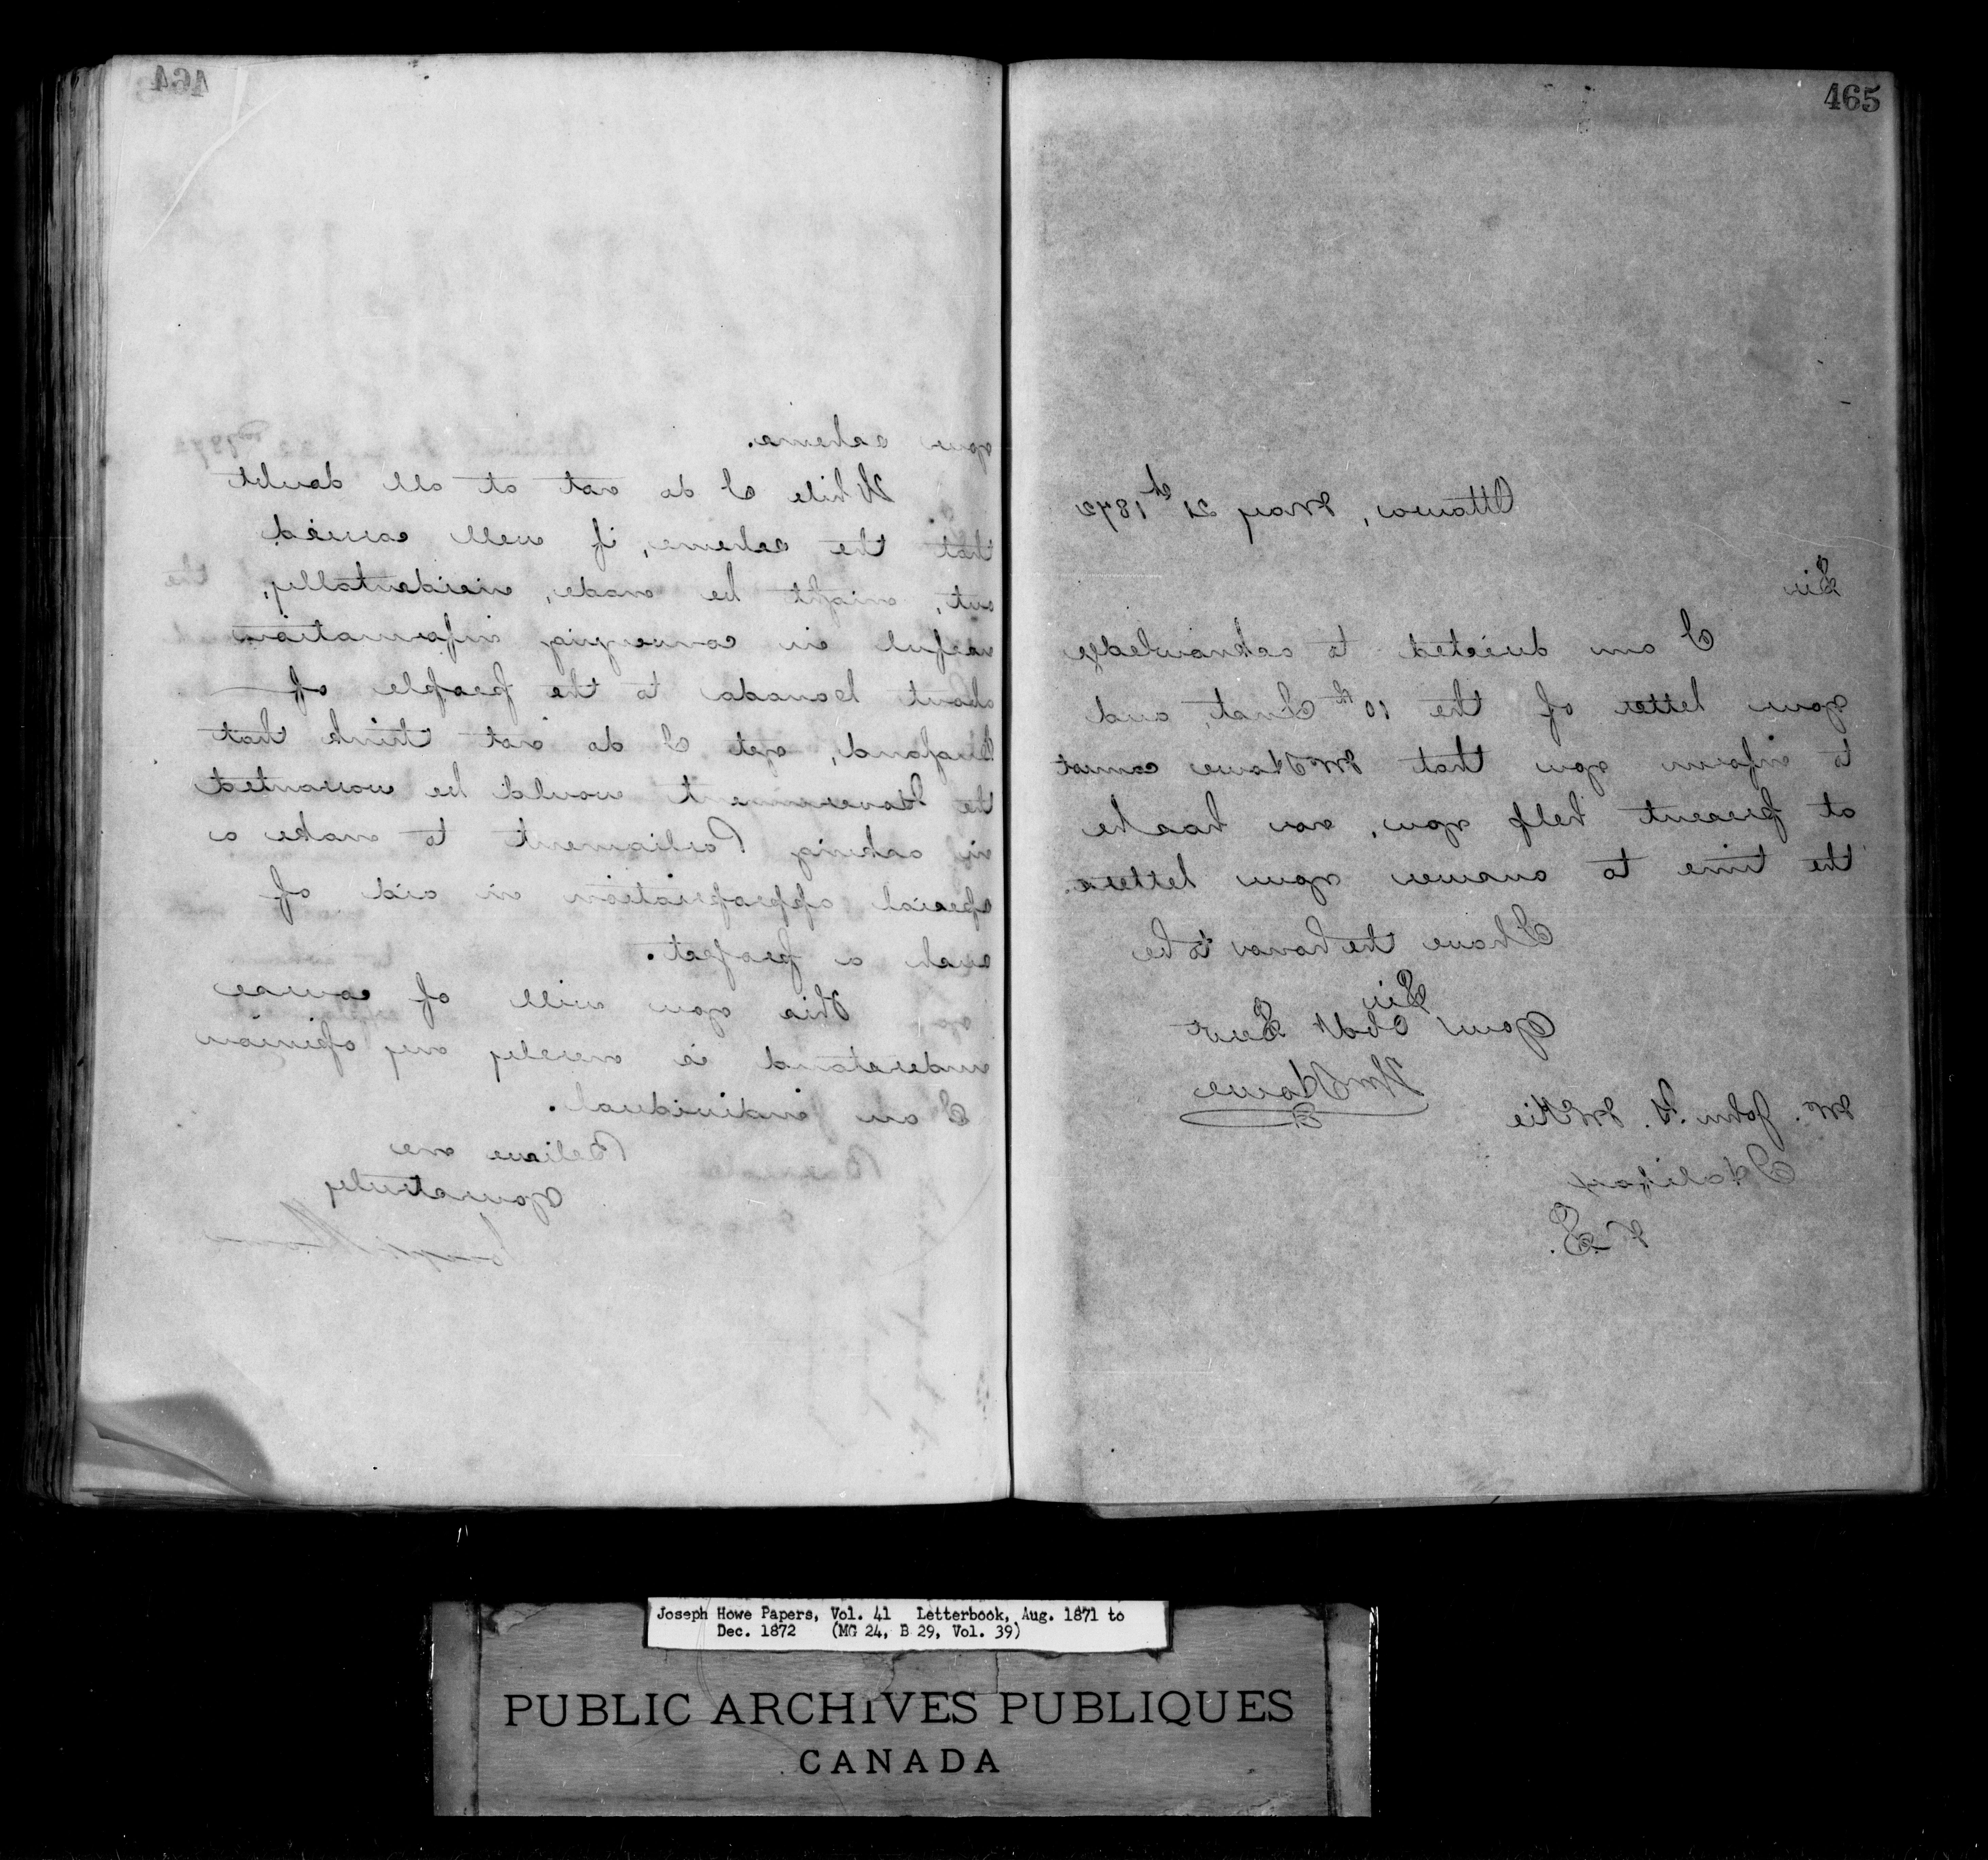 464
your scheme.
While I do not at all doubt
that the scheme, if well carried
out, might be made, incidentally,
useful in conveying information
about Canada to the people of
England, yet I do not think that
the Government would be warranted
in asking Parliament to make a
special appropriation in aid of
such a project.
This you will of course
understand is merely my opinion
as an individual.
Believe me
Yours truly
Joseph Howe
465
Ottawa, May 21st 1872
Sir
I am directed to acknowledge
your letter of the 10th Inst, and
to inform you that Mr Howe cannot
at present help you, nor has he
the time to answer your letters.
I have the honor to be
Sir
Your Obdt Servt
Wm Howe
Mr. John H. McKie
Halifax
N.S.
Joseph Howe Papers, Vol. 41 Letterbook, Aug. 1871 to
Dec. 1872 (MG 24, B 29, Vol. 39)
PUBLIC ARCHIVES PUBLIQUES
CANADA